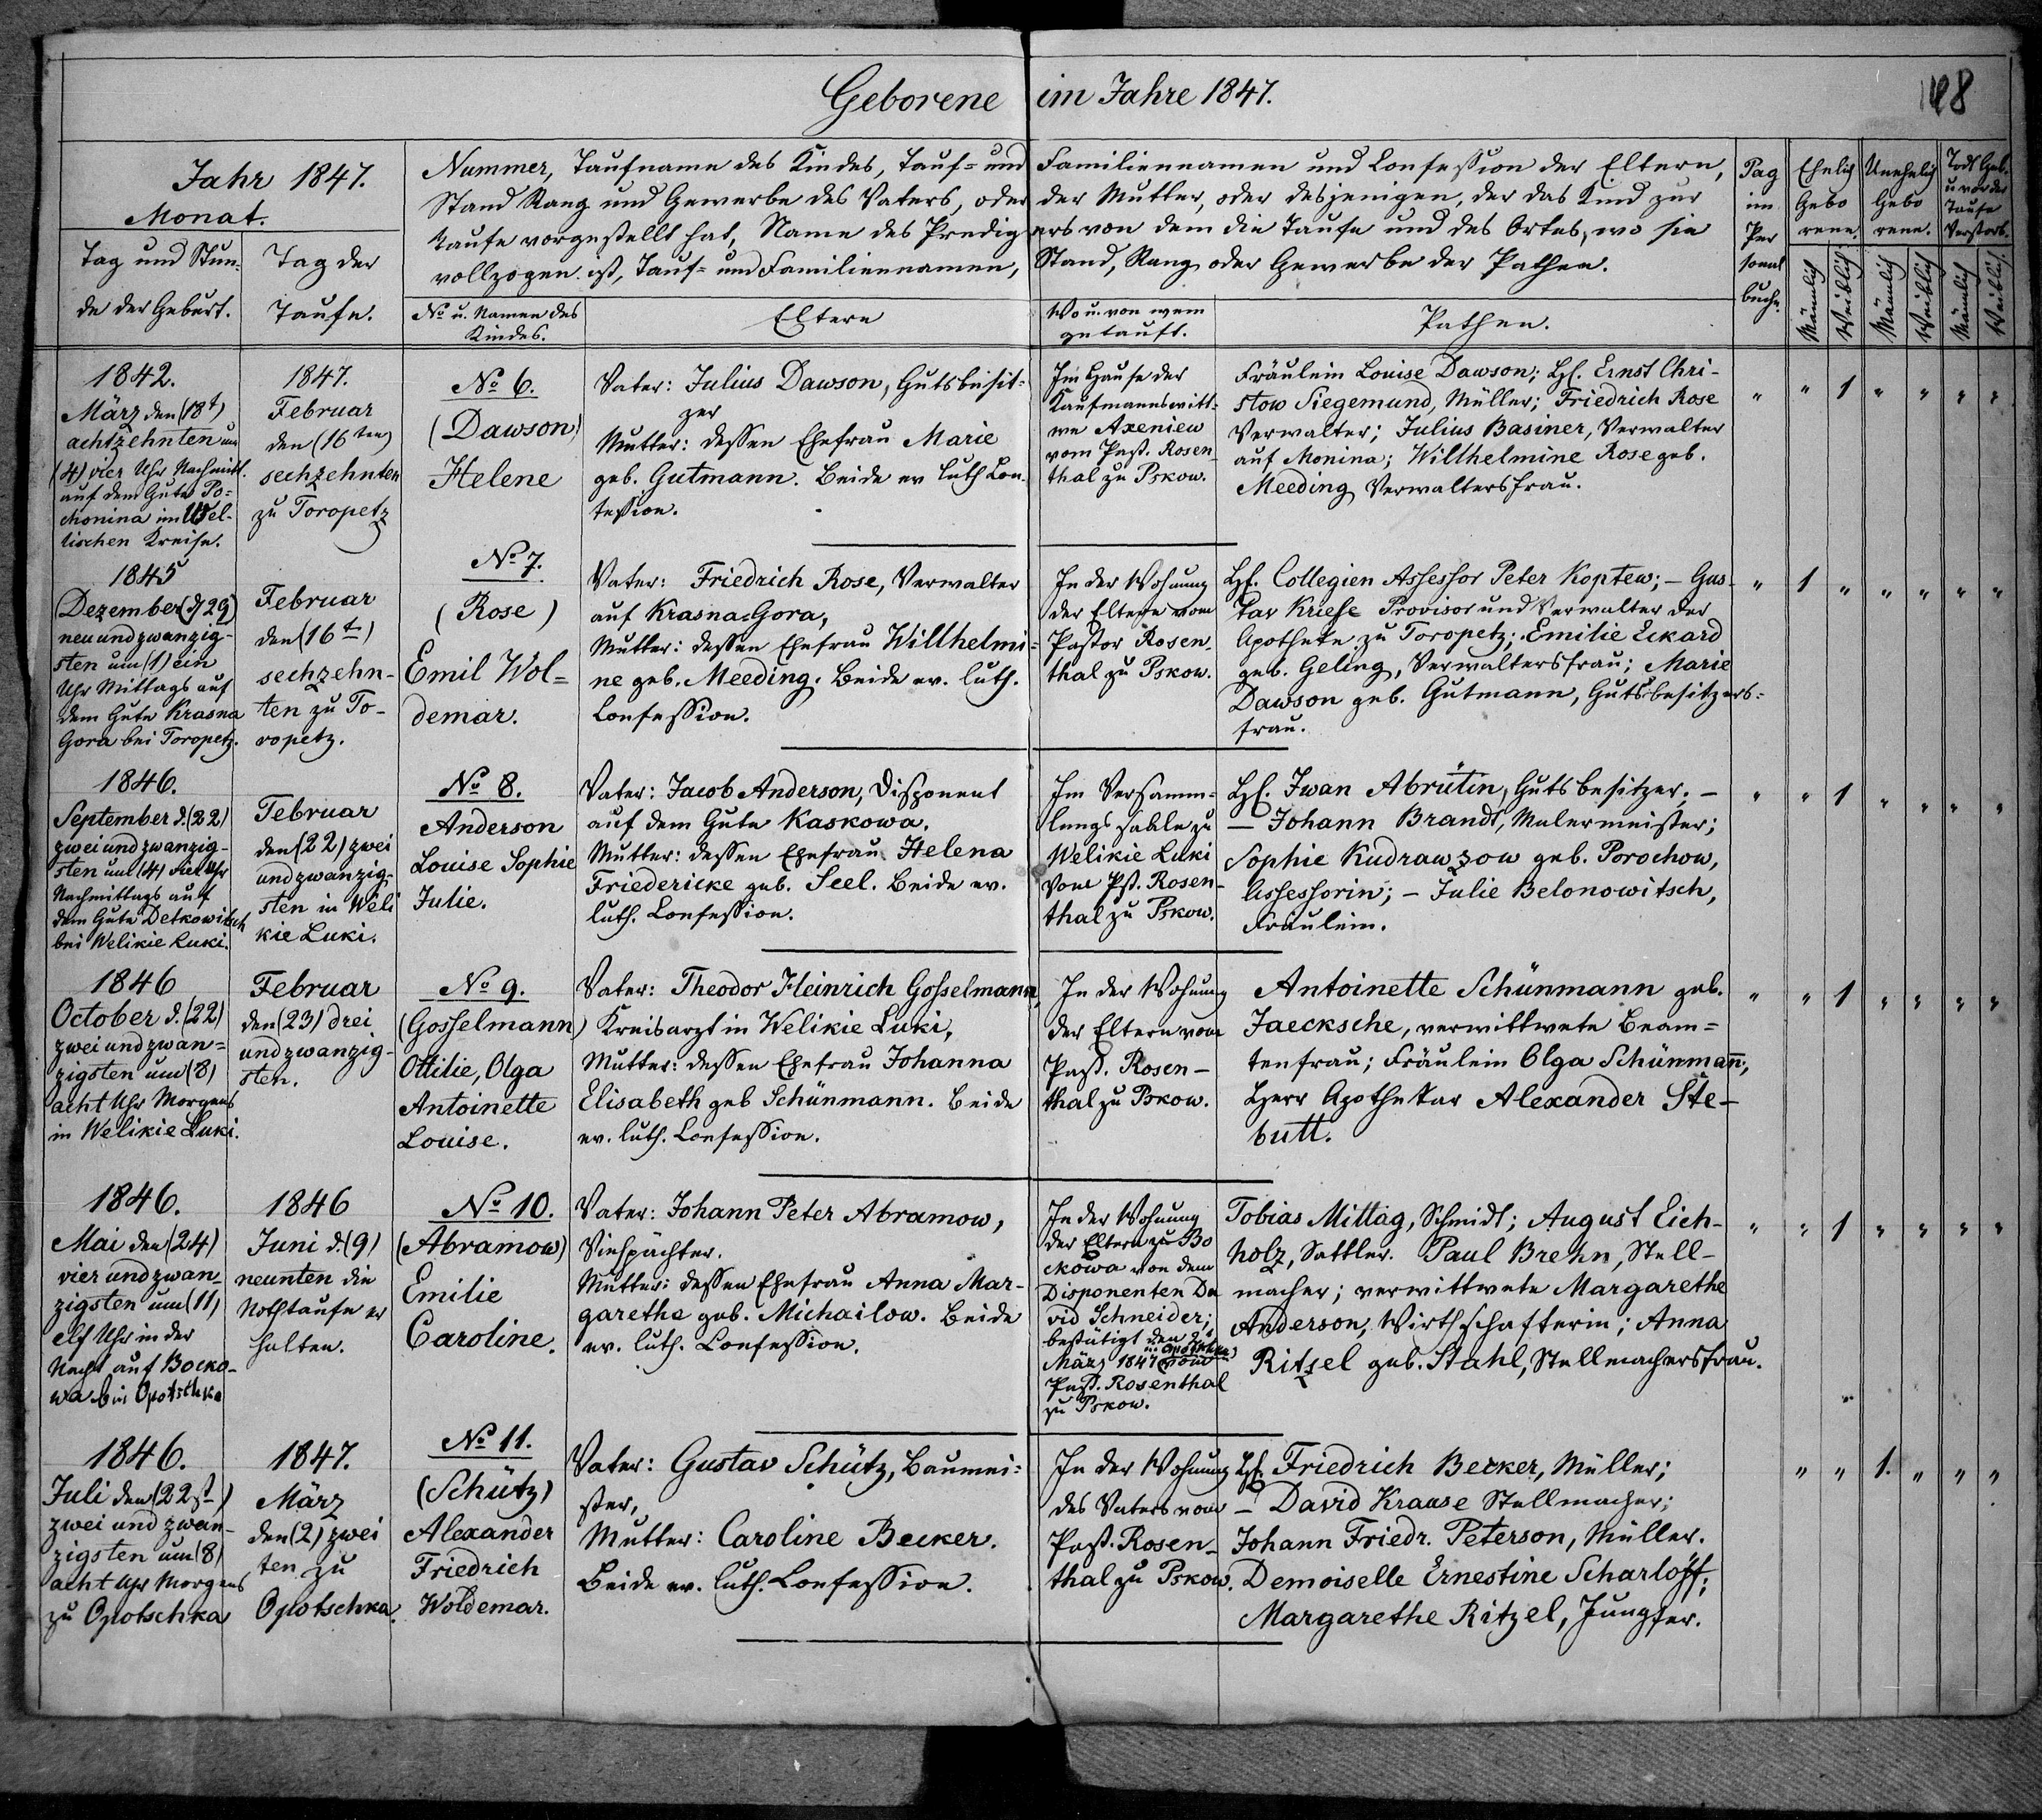 Geborene im Jahre 1847.
Jahr 1847.
Monat.
Tag und Stun-
de der Geburt.
Tag der
Taufe.
Nummer, Taufname des Kindes, Tauf- und Familiennamen und Confession der Eltern,
Stand Rang und Gewerbe des Vaters, oder der Mutter, oder desjenigen, der das Kind zur
Taufe vorgestellt hat, Name des Predigers von dem die Taufe und des Ortes, wo sie
vollzogen ist, Tauf- und Familiennamen, Stand, Rang oder Gewerbe der Pathen.
No u. Namen des
Kindes.
Eltern
Wo u. von wem
getauft.
Pathen.
Pag
im
Per
sonal
buche.
Ehelich
Gebo
rene.
Unehelich
Gebo
rene.
Todt Geb.
u vor der
Taufe
Verstorb.
Männlich
Weiblich
Männlich
Weiblich
Männlich
Weiblich
1842.
März den (18t)
achtzehnten um
(4) vier Uhr Nachmitt.
auf dem Gute Po-
monina im Wel-
lischen Kreise.
1847.
Februar
den (16ten)
sechzehnten
zu Toropetz
No 6.
(Dawson)
Helene
Vater: Julius Dawson, Gutsbesit-
zer
Mutter: dessen Ehefrau Marie
geb. Gutmann. Beide ev luth Con-
fession.
Im Hause der
Kaufmannswitt-
we Axeniew
vom Past. Rosen-
thal zu Pskow.
Fräulein Louise Dawson; HH. Ernst Chri-
stow Siegemund, Müller; Friedrich Rose
Verwalter; Julius Basiner, Verwalter
auf Monina; Willhelmine Rose geb.
Meeding Verwaltersfrau.
" " 1 " " " "
1845
Dezember (d 29)
neun und zwanzig-
sten um (1) ein
Uhr Mittags auf
dem Gute Krasna
Gora bei Toropetz.
Februar
den (16t)
sechzehn-
ten zu To-
ropetz.
No 7.
(Rose)
Emil Wol-
demar.
Vater: Friedrich Rose, Verwalter
auf Krasna Gora,
Mutter: dessen Ehefrau Willhelmi-
ne geb. Meeding. Beide ev. luth.
Confession.
In der Wohnung
der Eltern vom
Pastor Rosen-
thal zu Pskow.
HH. Collegien Assessor Peter Koptew; – Gus-
tav Kriese Provisor und Verwalter der
Apotheke zu Toropetz; Emilie Eckard
geb. Geling, Verwaltersfrau; Marie
Dawson geb. Gutmann, Gutsbesitzers-
frau.
" 1 " " " " "
1846.
September d. (22)
zwei und zwanzig-
sten um (4) vier Uhr
Nachmittags auf
dem Gute Detkowitsch
bei Welikie Luki.
Februar
den (22) zwei
und zwanzig-
sten in Weli
kie Luki.
No 8.
Anderson
Louise Sophie
Julie.
Vater: Jacob Anderson, Disponent
auf dem Gute Kaskowa.
Mutter: dessen Ehefrau Helena
Friedericke geb. Seel. Beide ev.
luth. Confession.
Im Versamm-
lungssaale zu
Welikie Luki
vom Pst. Rosen-
thal zu Pskow.
HH. Iwan Abrütin, Gutsbesitzer; –
– Johann Brandt, Malermeister;
Sophie Kudrawzow geb. Porochow,
Assessorin; – Julie Belonowitsch,
Fräulein.
" " 1 " " " "
1846
October d. (22)
zwei und zwan-
zigsten um (8)
acht Uhr Morgens
in Welikie Luki.
Februar
den (23) drei
und zwanzig-
sten.
No 9.
(Gosselmann)
Ottilie, Olga
Antoinette
Louise.
Vater: Theodor Heinrich Gosselmann,
Kreisarzt in Welikie Luki,
Mutter: dessen Ehefrau Johanna
Elisabeth geb Schünmann. Beide
ev. luth. Confession.
In der Wohnung
der Eltern vom
Past. Rosen-
thal zu Pskow.
Antoinette Schünmann geb.
Jaecksche, verwittwete Beam-
tenfrau; Fräulein Olga Schünman̄,
Herr Apotheker Alexander Ste-
butt.
" " 1 " " " "
1846.
Mai den (24)
vier und zwan-
zigsten um (11)
elf Uhr in der
Nacht auf Bocko-
wa bei Opotschka
1846
Juni d. (9)
neunten die
Nothtaufe er
halten.
No 10.
(Abramow)
Emilie
Caroline.
Vater: Johann Peter Abramow,
Viehpächter.
Mutter: dessen Ehefrau Anna Mar-
garetha geb. Michailow. Beide
ev. luth. Confession.
In der Wohnung
der Eltern zu Bo
ckowa von dem
Disponenten Da
vid Schneider;
bestätigt den 2t
März 1847 vom
Past. Rosenthal
zu Pskow.
Tobias Mittag, Schmidt; August Eich-
holz, Sattler. Paul Brehn, Stell-
macher; verwittwete Margarethe
Anderson, Wirthschafterin; Anna
Ritzel geb. Stahl, Stellmachersfrau.
" " 1 " " " "
1846.
Juli den (22st)
zwei und zwan-
zigsten um (8)
acht Uhr Morgens
zu Opotschka
1847.
März
den (2) zwei
ten zu
Opotschka.
No 11.
(Schütz)
Alexander
Friedrich
Woldemar.
Vater: Gustav Schütz, Baumei-
ster,
Mutter: Caroline Becker.
Beide ev. luth. Confession.
In der Wohnung
des Vaters vom
Past. Rosen-
thal zu Pskow.
HH. Friedrich Becker, Müller;
– David Krause Stellmacher;
Johann Friedr. Peterson, Müller.
Demoiselle Ernestine Scharloff;
Margarethe Ritzel, Jungfer.
" " 1. " " "